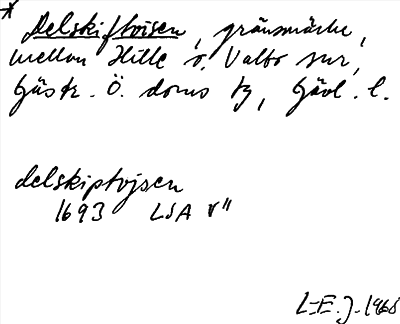 * Delskiftoisen, gränsmärke,
mellan Hille o. Valbo snr,
Gästr. Ö. doms tg, Gävl. l.
delskiptojsen
1693 LSA V"
L-E. J. 1968